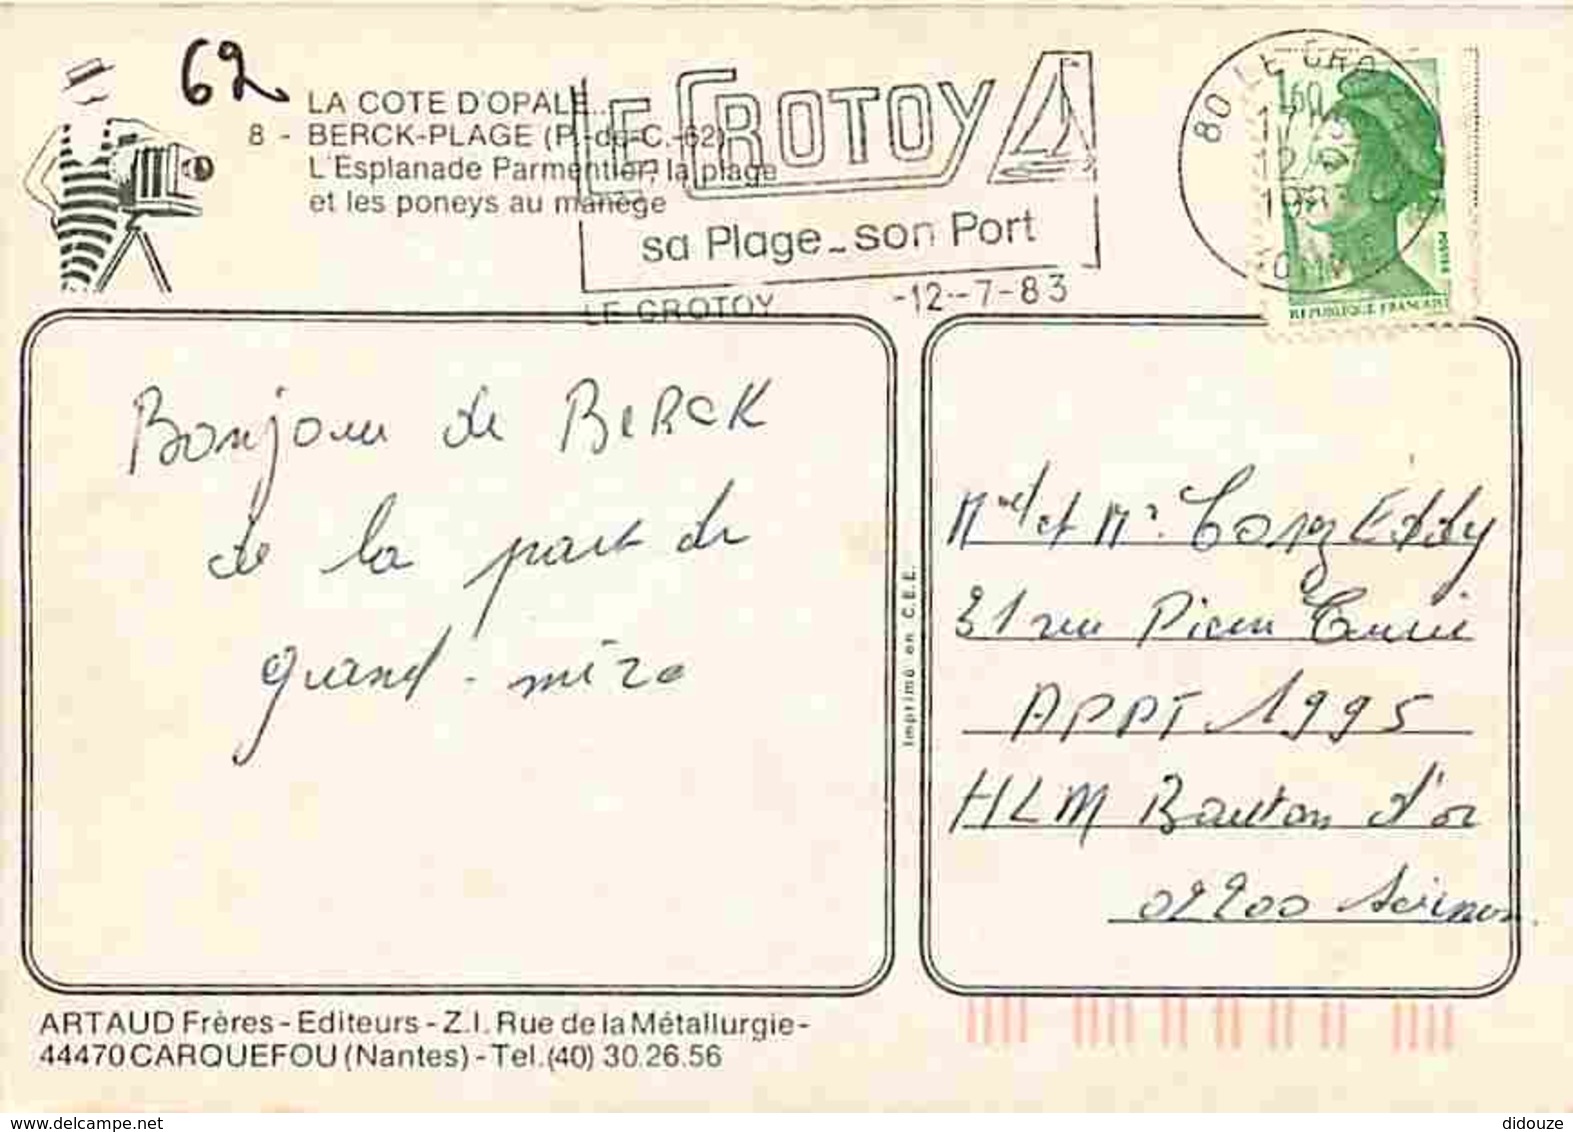 62
LA COTE D'OPALE...
8 - BERCK-PLAGE (P.-de-C.-62)
L'Esplanade Parmentier, la plage
et les poneys au manège
LE CROTOY
sa Plage_son Port
LE CROTOY -12-7-83
80 LE CRO
12
1983
SOMME
1,60
POSTES
REPUBLIQUE FRANCAISE
Bonjour de BERCK
de la part de
grand-mère
Imprimé en C.E.E.
Mme et Mr Eddy
31 rue Pierre Curie
APPT 1995
HLM Boutton d'or
02200
ARTAUD Frères - Editeurs - Z.I. Rue de la Métallurgie -
44470 CARQUEFOU (Nantes) - Tel. (40) 30.26.56
delcampe.net
didouze